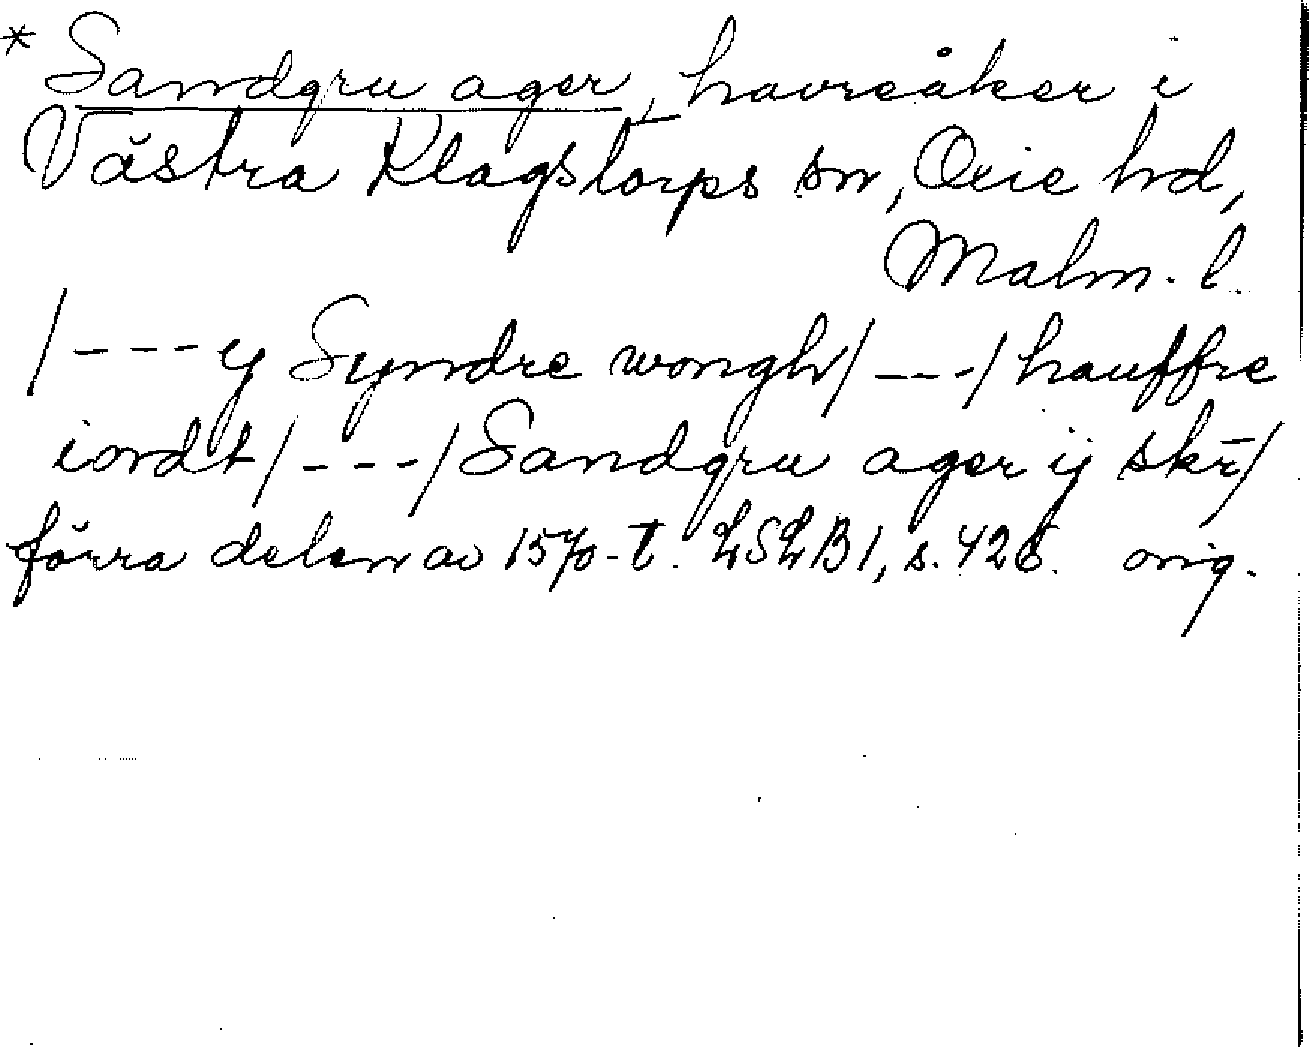 * Sandgru ager, havreåker i
Västra Klagstorps sn, Oxie hd,
Malm. l.
/---y Syndre wongh/---/hauffre
iordt/---/Sandgru ager ij skr̄/
förra delen av 1570-t. LSLB1, s. 426. orig.